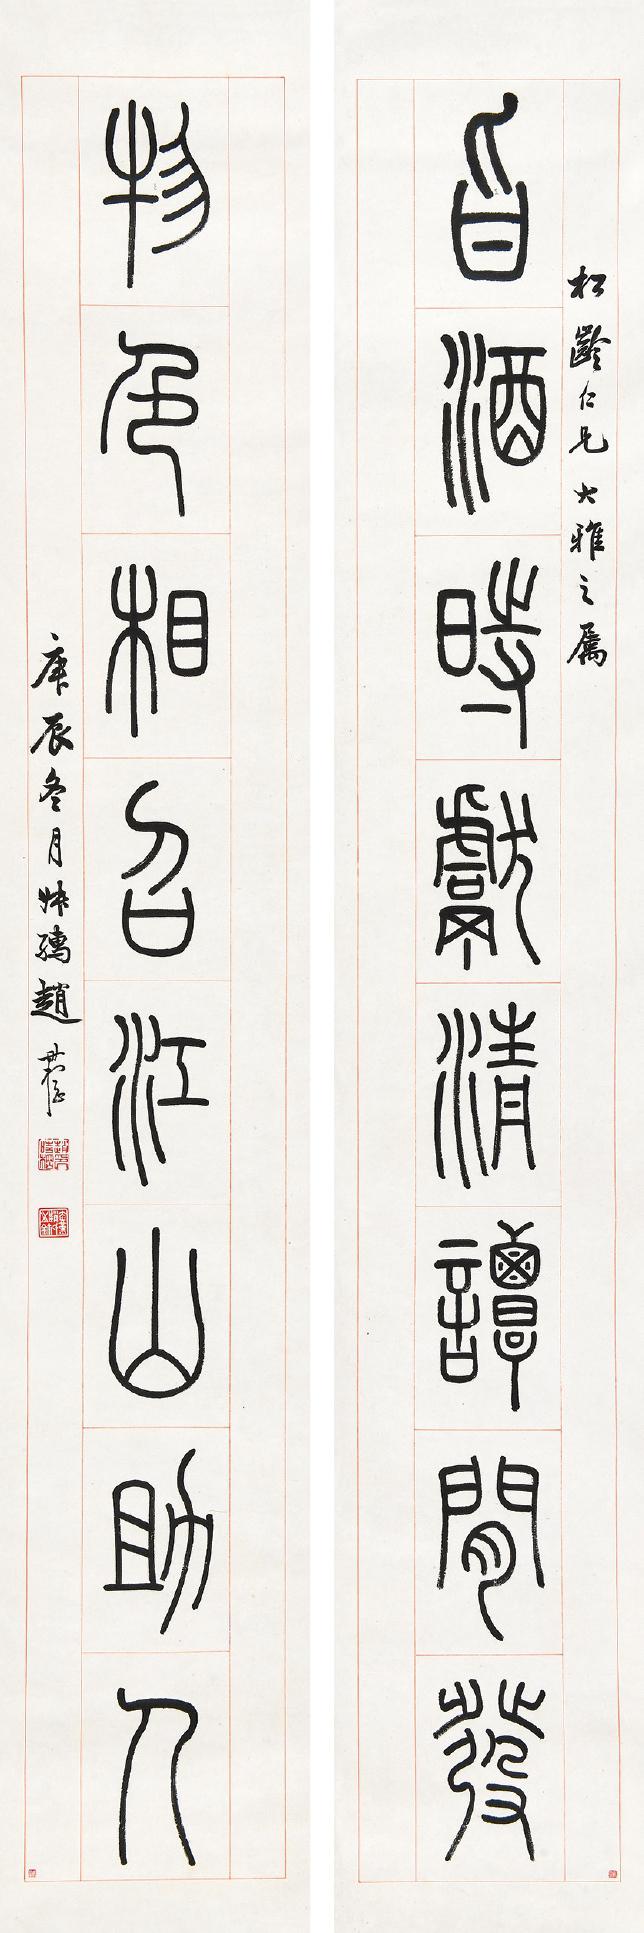 松齡仁兄大雅之屬
旨酒時獻清譚閒發
物色相召江山助人
庚辰冬月叔孺趙時棡